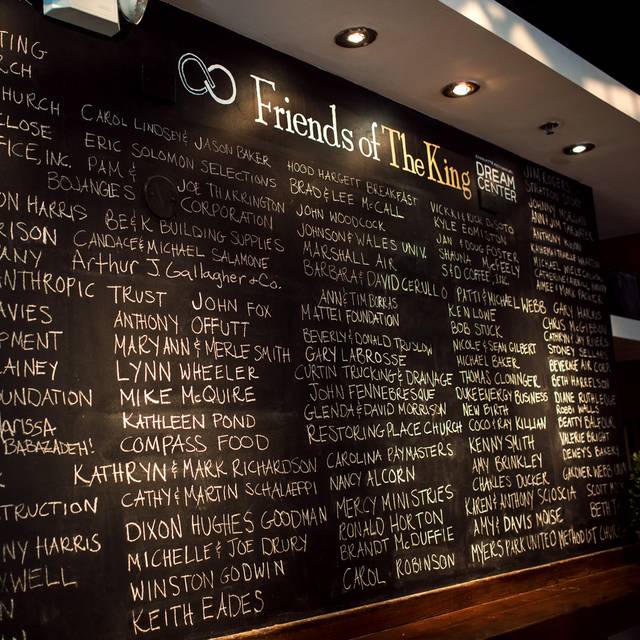 Friends of The King
DREAM
CENTER
TING
RCH
CHURCH
ELOSE
FICE, INC.
ON HARRIS
RISON
ANY
ANTHROPIC TRUST
AVIES
PMENT
LAINEY
OUNDATION
MARISSA
BABAZADEH!
TRUCTION
NY HARRIS
XWELL
CAROL LINDSEY & JASON BAKER
ERIC SOLOMON SELECTIONS
PAM &
BOJANGLES
JOE THARRINGTON
CORPORATION
BE&K BUILDING SUPPLIES
CANDACE & MICHAEL SALAMONE
Arthur J Gallagher & Co.
JOHN FOX
ANTHONY OFFUTT
MARY ANN & MERLE SMITH
LYNN WHEELER
MIKE McQUIRE
KATHLEEN POND
COMPASS FOOD
KATHRYN & MARK RICHARDSON
CATHY & MARTIN SCHALAEPPI
DIXON HUGHES GOODMAN
MICHELLE & JOE DRURY
WINSTON GODWIN
KEITH EADES
HOOD HARGETT BREAKFAST
BRAD & LEE McCALL
JOHN WOODCOCK
JOHNSON & WALES UNIV.
MARSHALL AIR
BARBARA & DAVID CERULLO
ANN & TIM BURKAS
MATTEI FOUNDATION
BEVERLY & DONALD TRUSLOW
GARY LABROSSE
CURTIN TRUCKING & DRAINAGE
JOHN FENNEBRESQUE
GLENDA & DAVID MORRISON
RESTORING PLACE CHURCH
CAROLINA PAYMASTERS
NANCY ALCORN
MERCY MINISTRIES
RONALD HORTON
BRANDT McDUFFIE
CAROL ROBINSON
KYLE EDMISTON
JAN & DOUG FOSTER
SHAUNA McFEELY
S&D COFFEE, INC.
PATTI & MICHAEL WEBB
KEN LOWE
BOB STICK
NICOLE & SEAN GILBERT
MICHAEL BAKER
THOMAS CLONINGER
DUKE ENERGY BUSINESS
NEW BIRTH
COCO & RAY KILLIAN
KENNY SMITH
AMY BRINKLEY
CHARLES DUCKER
KAREN & ANTHONY SCIOSCIA
AMY & DAVIS MOISE
MYERS PARK UNITED METHODIST CHURCH
JIM ROGERS
GARY HARRIS
STONEY SELLARS
BETH HARRELSON
DIANE RUTHLEDGE
ROBBI WALLS
BEATTY BALFOUR
VALERIE BRIGHT
DENEYS BAKERY
GARDNER WEBB
SCOTT
BETH